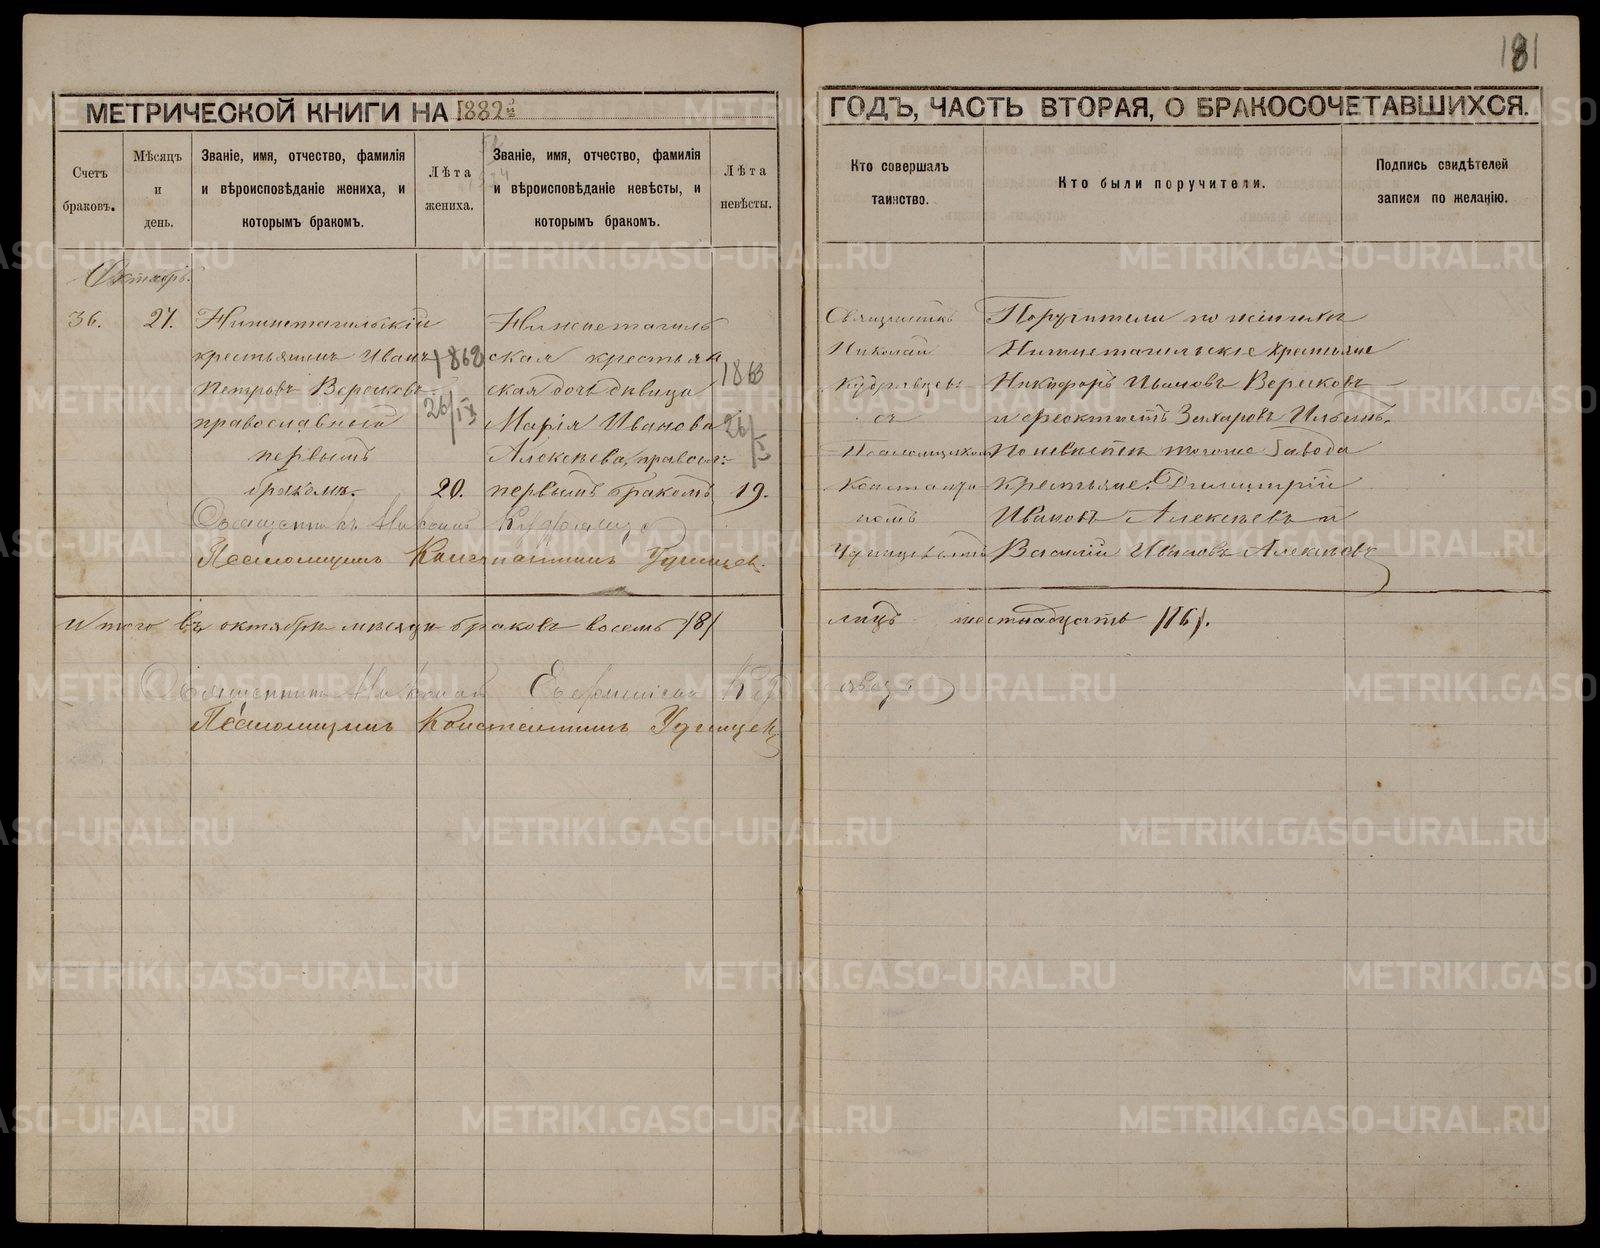 181
МЕТРИЧЕСКОЙ КНИГИ НА 1882й
ГОДЪ, ЧАСТЬ ВТОРАЯ, О БРАКОСОЧЕТАВШИХСЯ.
Счетъ браковъ.
Мѣсяцъ и день.
Званіе, имя, отчество, фамилія
и вѣроисповѣданіе жениха, и
которымъ бракомъ.
Лѣта
жениха.
Званіе, имя, отчество, фамилія
и вѣроисповѣданіе невѣсты, и
которымъ бракомъ.
Лѣта
невѣсты.
Кто совершалъ
таинство.
Кто были поручители.
Подпись свидѣтелей
записи по желанію.
Октябрь.
36.
27.
Нижнетагильскій
крестьянинъ Иванъ
Петровъ Вересковъ
православный
первымъ
бракомъ.
1862
26/IX
20.
Нижнетагиль
ская крестьян
ская дочь дѣвица
Марія Иванова
Алексѣева, правосл:
первымъ бракомъ
1863
26/
19.
Священникъ
Николай
Кудрявцевъ
съ
Псаломщикомъ
Константи
номъ
Удинцевымъ
Поручители по женихѣ
Нижнетагильскіе крестьяне
Никифоръ Ивановъ Вересковъ
и Феоктистъ Захаровъ Ильинъ.
По невѣстѣ тогоже Завода
крестьяне: Димитрій
Ивановъ Алексѣевъ и
Василій Ивановъ Алексѣевъ
Священникъ Николай Кудрявцевъ
Псаломщикъ Константинъ Удинцевъ.
Итого въ октябрѣ мѣсяцѣ браковъ восемь /8/
лицъ шестнадцать /16/.
Священникъ Николай Кудрявцевъ
Псаломщикъ Константинъ Удинцевъ
METRIKI.GASO-URAL.RU